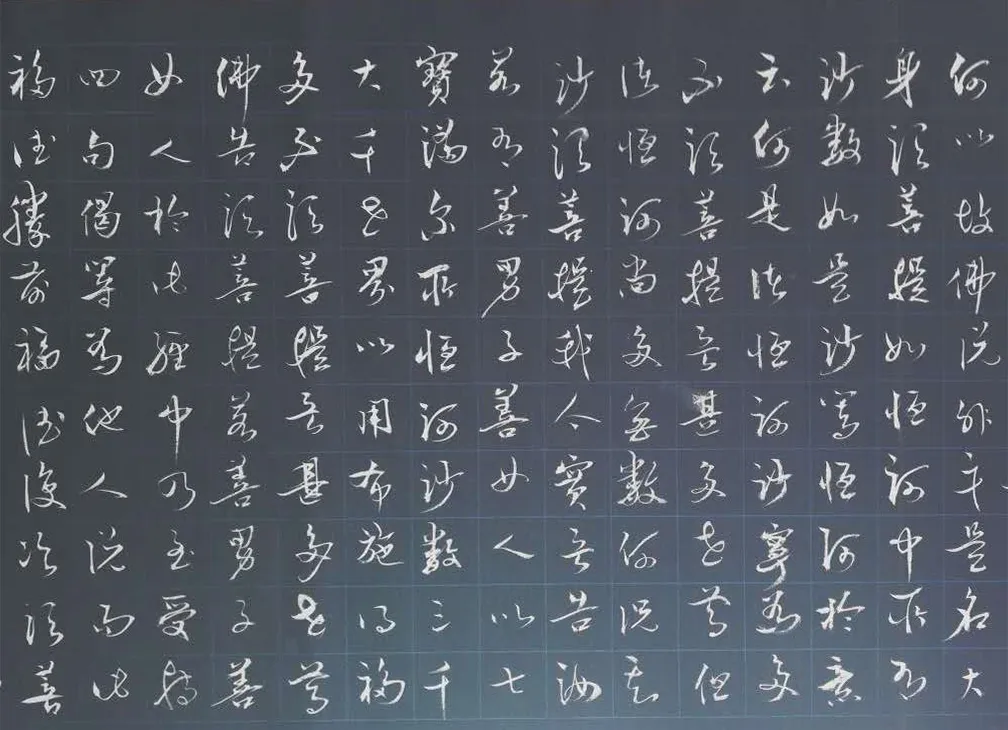 何以故佛説非身是名大
身須菩提如恒河中所有
沙數如是沙等恒河於意
云何是諸恒河沙寧為多
不須菩提言甚多世尊但
諸恒河尚多無數何況其
沙須菩提我今實言告汝
若有善男子善女人以七
寶滿爾所恒河沙數三千
大千世界以用布施得福
多不須菩提言甚多世尊
佛告須菩提若善男子善
女人於此經中乃至受持
四句偈等為他人説而此
福德勝前福德復次須菩